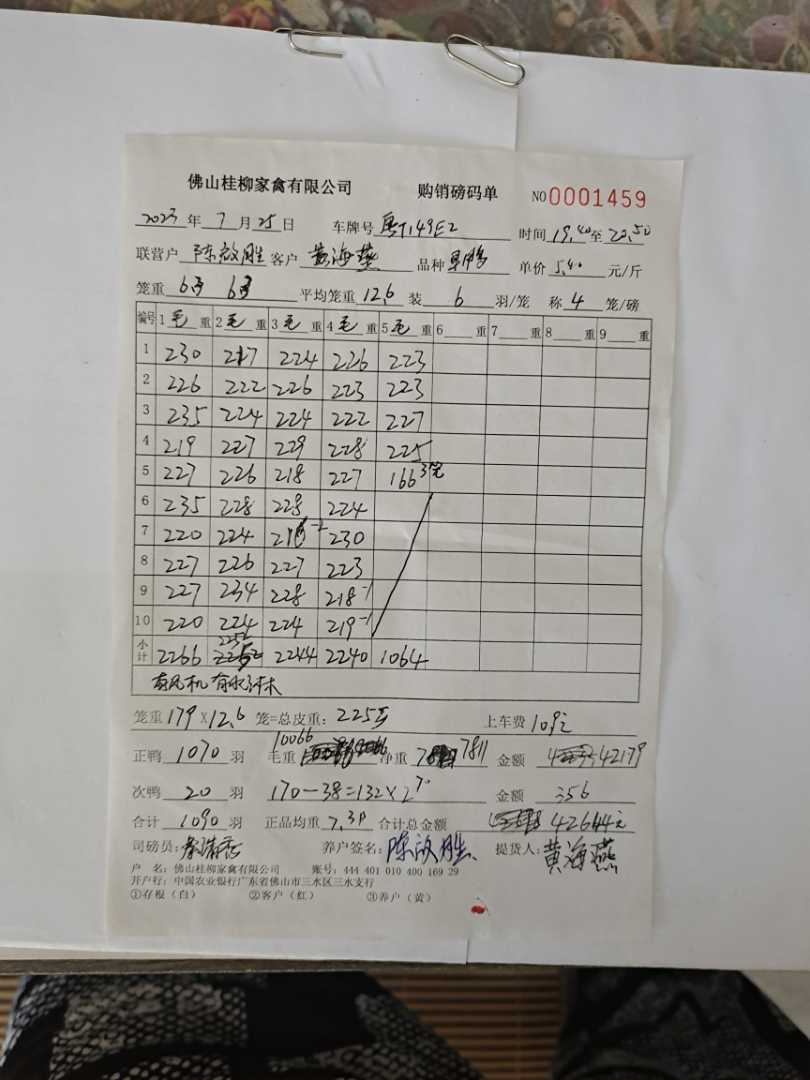 佛山桂柳家禽有限公司 购销磅码单 NO 0001459
2023 年 7 月 25 日 车牌号 粤T149E2 时间 19.40 至 20.50
联营户 陈啟胜 客户 黄海燕 品种 单价 5.40 元/斤
笼重 6个 6个 平均笼重 12.6 装 6 羽/笼 称 4 笼/磅
编号 1 毛 重 2 毛 重 3 毛 重 4 毛 重 5 毛 重 6 重 7 重 8 重 9 重
1 230 217 224 226 223
2 226 222 226 223 223
3 235 224 224 222 227
4 219 227 229 228 225
5 227 226 218 227 166 3笼
6 235 228 228 224
7 220 224 216 -2 230
8 227 226 227 223
9 227 234 228 218 -1
10 220 224 224 219 -1
小计 2266 2252 2244 2240 1064
有风机 有水
笼重 179 X 12.6 笼=总皮重: 2255 上车费 109元
正鸭 1070 羽 毛重 10066 净重 7811 金额 42179
次鸭 20 羽 170-38=132 X 2.70 金额 356
合计 1090 羽 正品均重 7.3 合计总金额 42644元
司磅员: 养户签名: 陈啟胜 提货人: 黄海燕
户 名: 佛山桂柳家禽有限公司 账号: 444 401 010 400 169 29
开户行: 中国农业银行广东省佛山市三水区三水支行
①存根(白) ②客户(红) ③养户(黄)